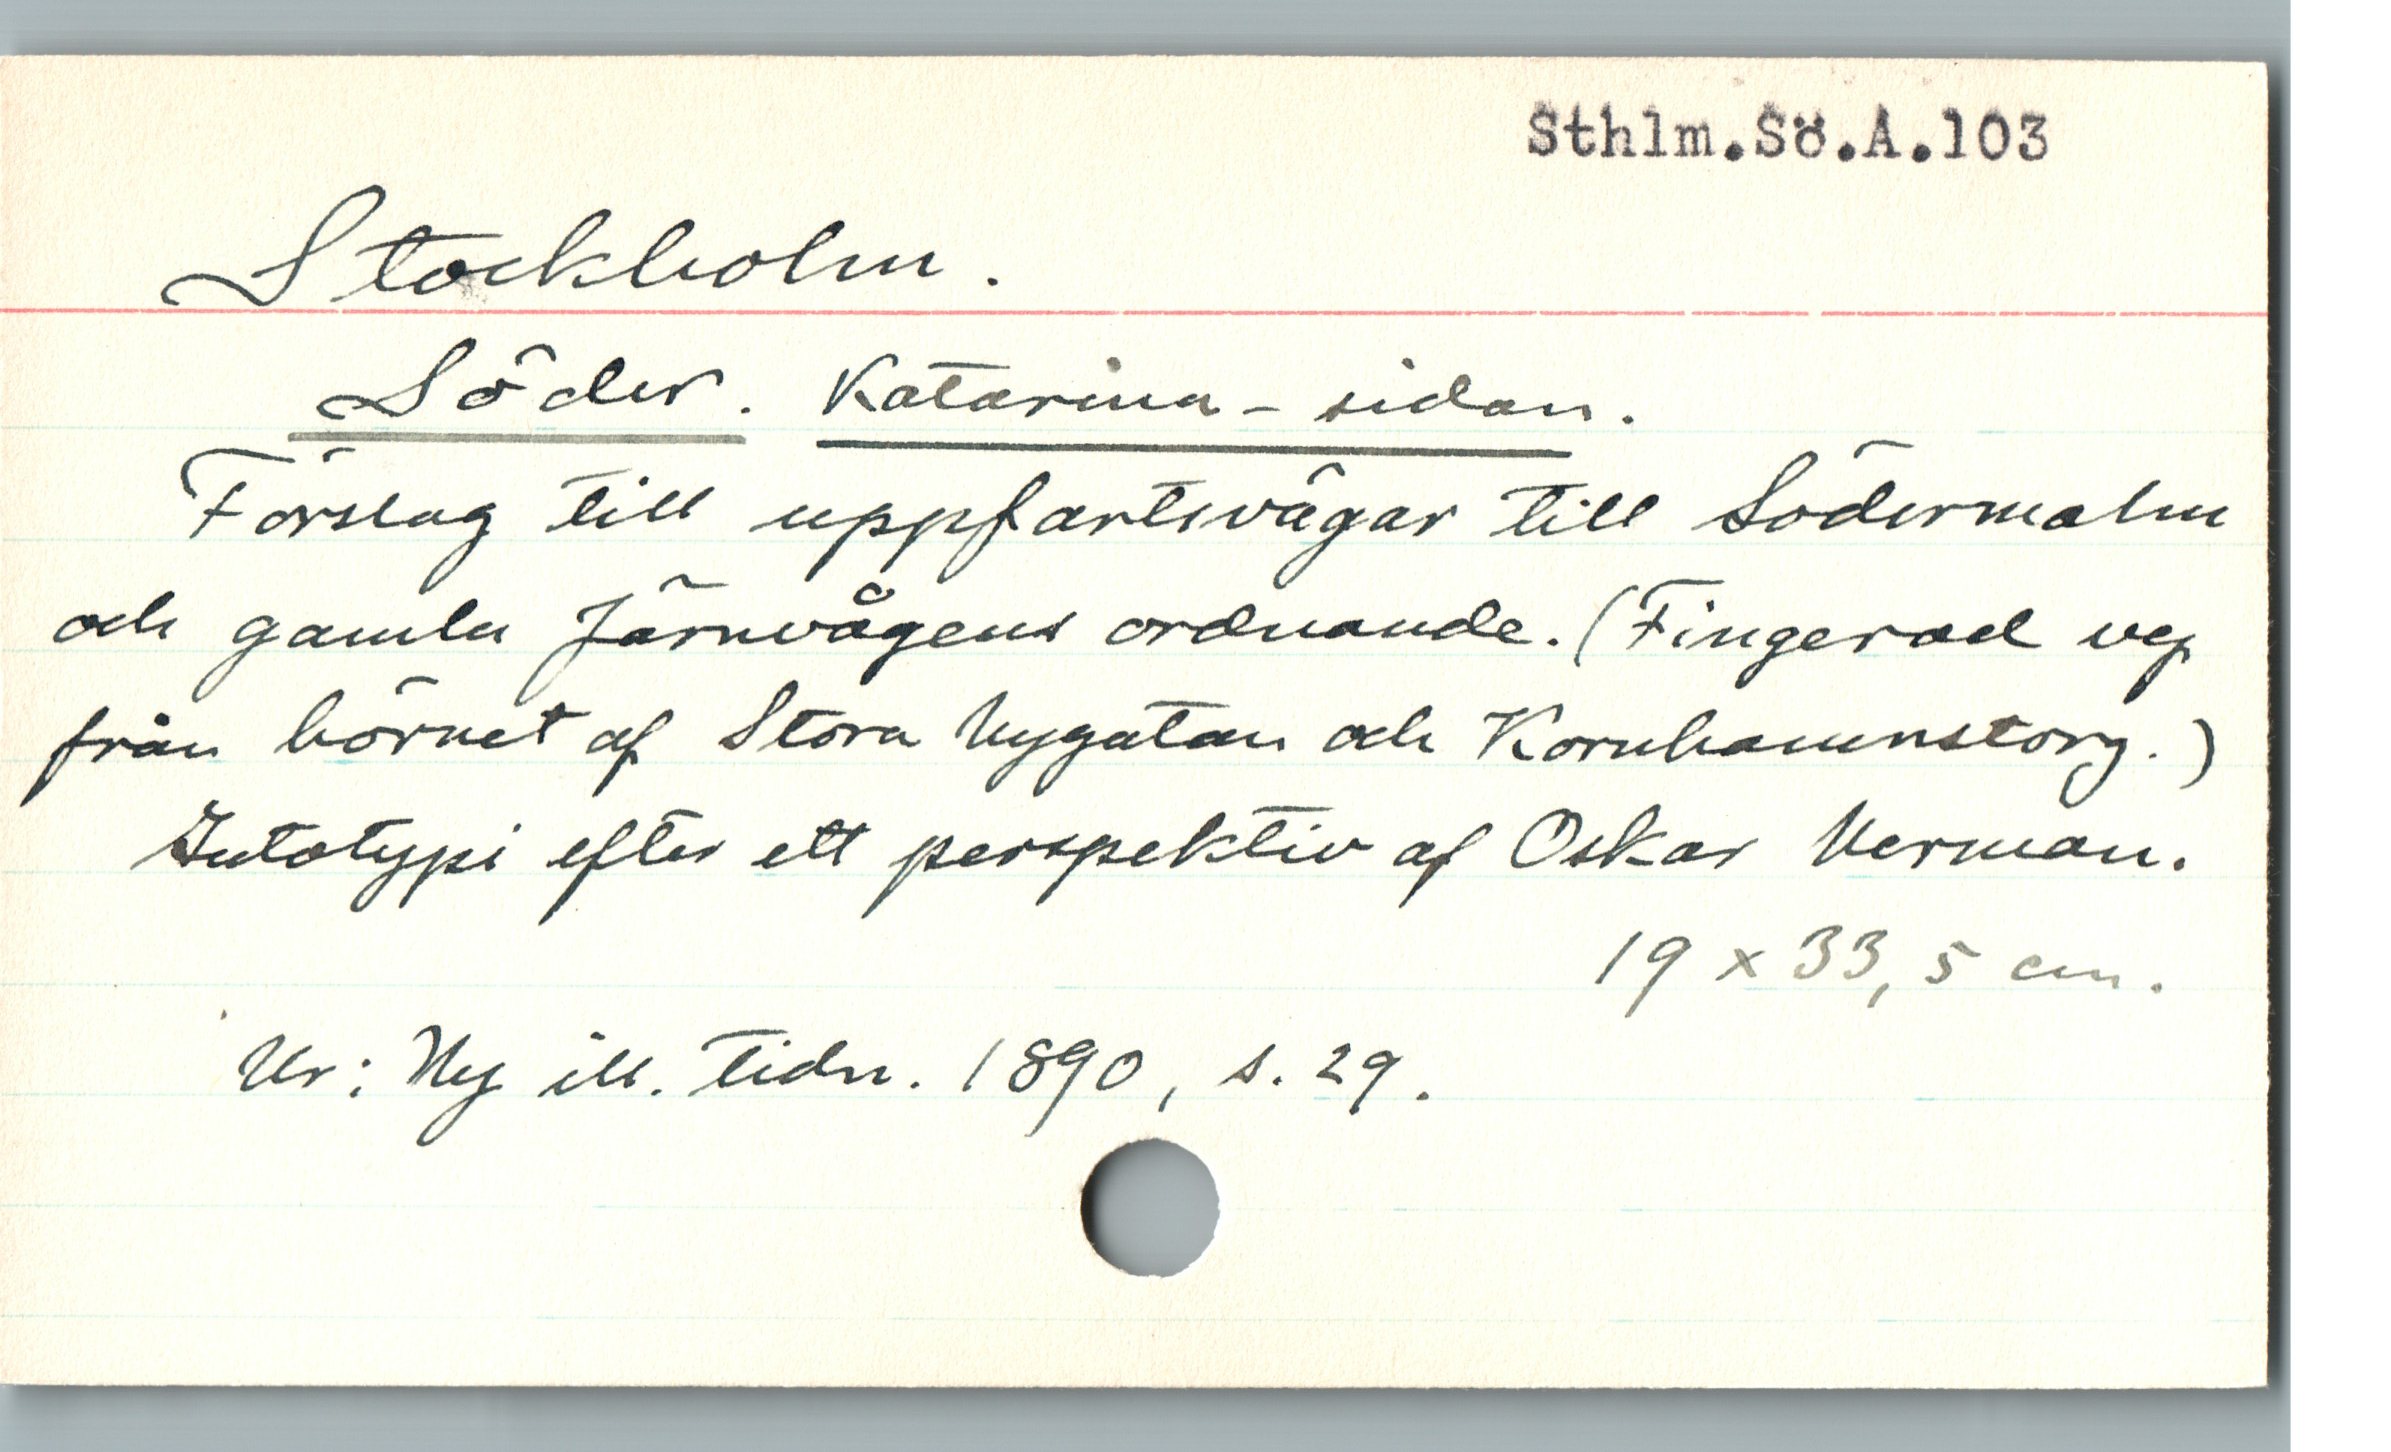 Sthlm.Sö.A.103
Stockholm.
Söder. Katarina-sidan.
Förslag till uppfartsvägar till Södermalm
och gamla Järnvågens ordnande. (Fingerad vy
från hörnet af Stora Nygatan och Kornhamnstorg.)
Autotypi efter ett perspektiv af Oskar Werman.
19 x 33,5 cm.
Ur: Ny ill. tidn. 1890, s. 29.